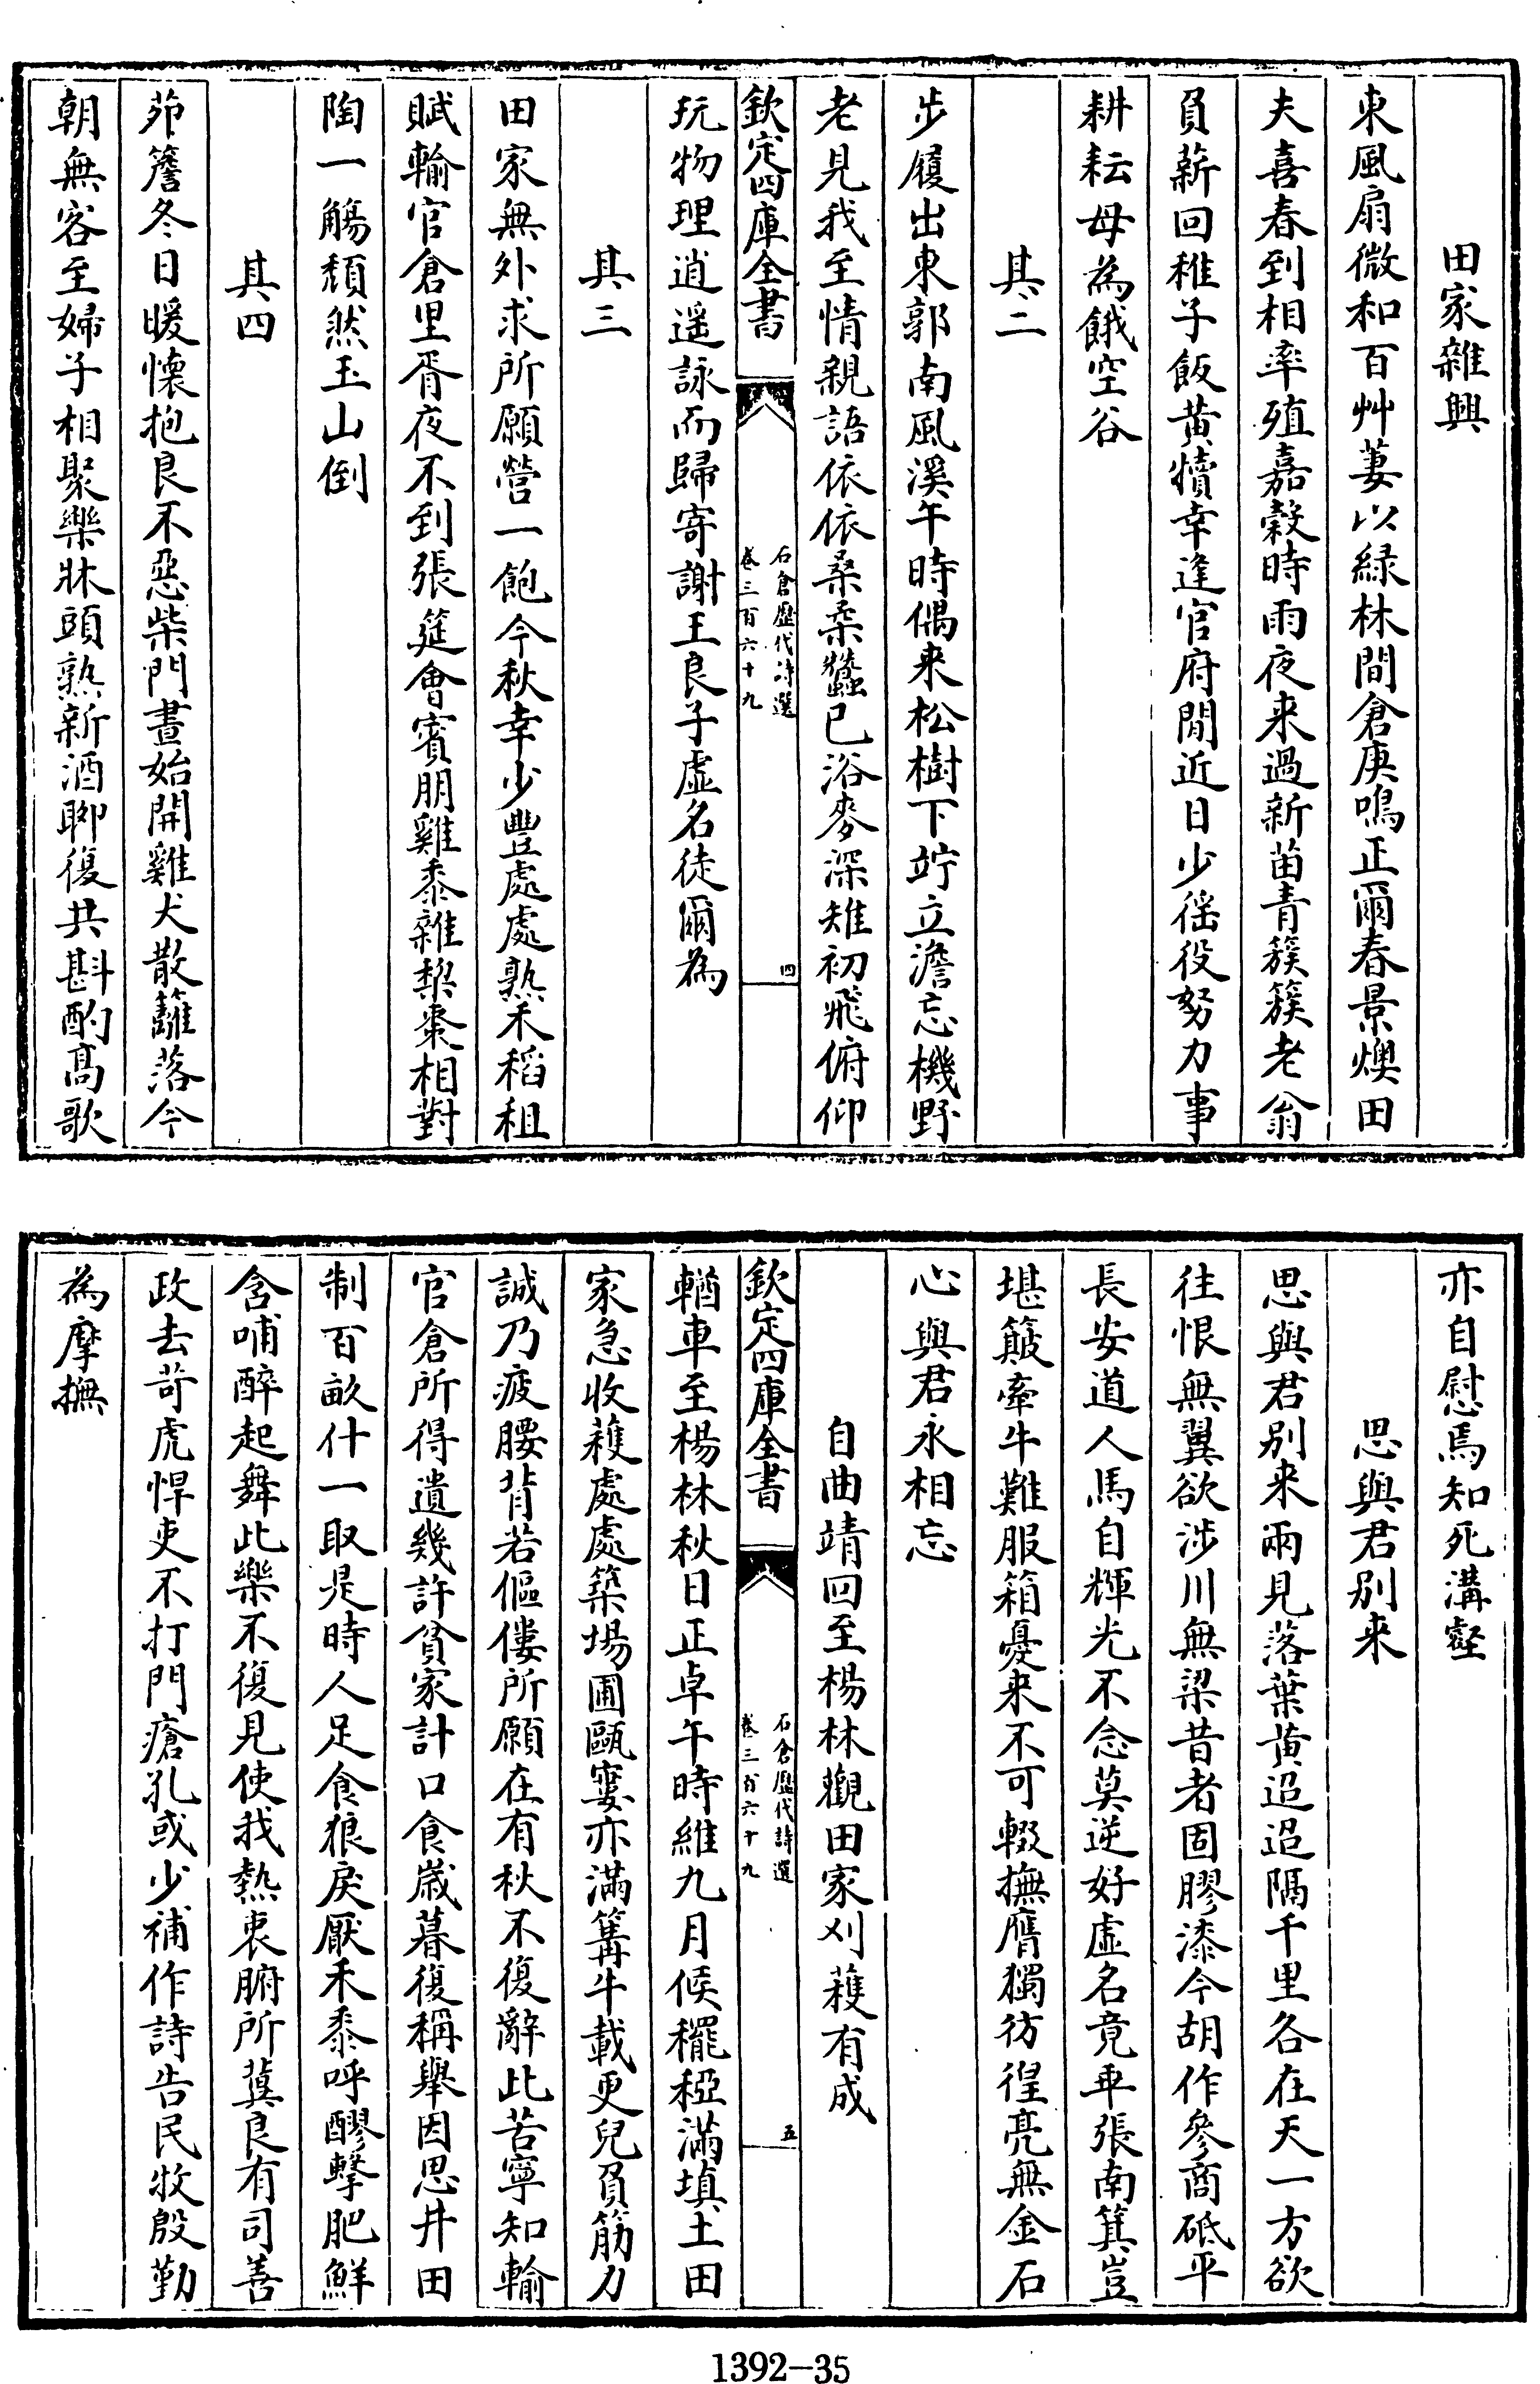 田家雜興
東風扇微和百艸萋以緑林間倉庚鳴正爾春景燠田
夫喜春到相率殖嘉穀時雨夜来過新苗青簇簇老翁
負薪回稚子飯黄犢幸逢官府閒近日少徭役努力事
耕耘毋為餓空谷
其二
步履出東郭南風溪午時偶来松樹下竚立澹忘機野
老見我至情親語依依桑柔蠶已浴麥深雉初飛俯仰
欽定四庫全書
石倉歷代詩選
卷三百六十九
四
玩物理逍遥詠而歸寄謝王良子虚名徒爾為
其三
田家無外求所願營一飽今秋幸少豐處處熟禾稻租
賦輸官倉里胥夜不到張筵會賓朋雞黍雜棃棗相對
陶一觴頹然玉山倒
其四
茆簷冬日暖懐抱良不惡柴門晝始開雞犬散籬落今
朝無客至婦子相聚樂牀頭熟新酒聊復共斟酌髙歌
亦自慰焉知死溝壑
思與君别来
思與君别来兩見落葉黄迢迢隔千里各在天一方欲
往恨無翼欲涉川無梁昔者固膠漆今胡作參商砥平
長安道人馬自輝光不念莫逆好虚名竟乖張南箕豈
堪簸牽牛難服箱憂来不可輟撫膺獨彷徨亮無金石
心與君永相忘
自曲靖回至楊林觀田家刈穫有成
欽定四庫全書
石倉歷代詩選
卷三百六十九
五
輶車至楊林秋日正卓午時維九月候䆉稏滿填土田
家急收穫處處築場圃甌窶亦滿篝牛載更兒負筋力
誠乃疲腰背若傴僂所願在有秋不復辭此苦寧知輸
官倉所得遺幾許貧家計口食嵗暮復稱舉因思井田
制百畝什一取是時人足食狼戾厭禾黍呼醪擊肥鮮
含哺醉起舞此樂不復見使我熱衷腑所冀良有司善
政去苛虎悍吏不打門瘡孔或少補作詩告民牧殷勤
為摩撫
1392-35